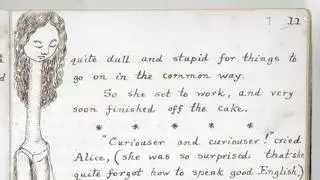 7 11
quite dull and stupid for things to
go on in the common way.
So she set to work, and very
soon finished off the cake.
* * * * * *
"Curiouser and curiouser!" cried
Alice, (she was so surprised that she
quite forgot how to speak good English,)